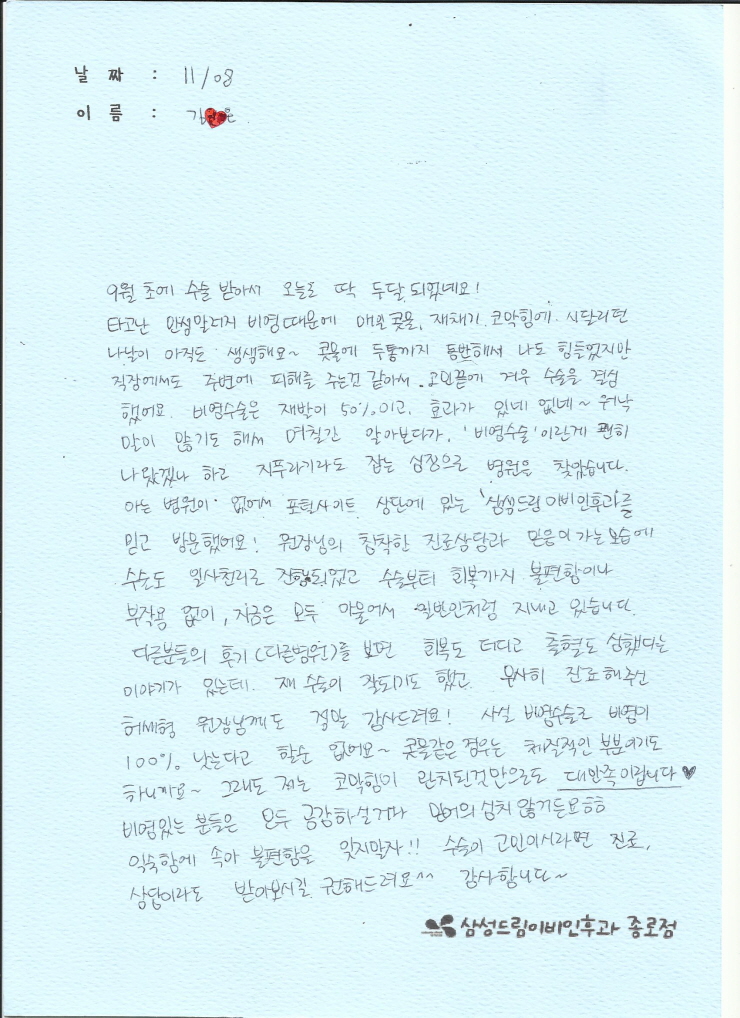 날 짜 : 11/08
이 름 : 김 은
9월 초에 수술 받아서 오늘로 딱 두달 되었네요!
타고난 만성알러지 비염때문에 매일 콧물, 재채기. 코막힘에 시달리던
나날이 아직도 생생해요~ 콧물에 두통까지 동반해서 나도 힘들었지만
직장에서도 주변에 피해를 주는것 같아서 고민끝에 겨우 수술을 결심
했어요. 비염수술은 재발이 50%이고, 효과가 있네 없네~ 워낙
말이 많기도 해서 며칠간 알아보다가, '비염수술'이란게 괜히
나왔겠나 하고 지푸라기라도 잡는 심정으로 병원을 찾았습니다.
아는 병원이 없어서 포털사이트 상단에 있는 '삼성드림이비인후과'를
믿고 방문했어요! 원장님의 침착한 진료상담과 믿음이 가는 모습에
수술도 일사천리로 진행되었고 수술부터 회복까지 불편함이나
부작용 없이, 지금은 모두 아물어서 일반인처럼 지내고 있습니다.
다른분들의 후기(다른병원)를 보면 회복도 더디고 출혈도 심했다는
이야기가 있는데. 제 수술이 잘되기도 했고. 무사히 진료해주신
허세형 원장님께도 정말 감사드려요! 사실 비염수술로 비염이
100% 낫는다고 할순 없어요~ 콧물같은 경우는 체질적인 부분이기도
하니까요~ 그래도 저는 코막힘이 완치된것만으로도 대만족이랍니다♥
비염있는 분들은 모두 공감하실거다 믿어 의심치 않거든요ㅎㅎ
익숙함에 속아 불편함을 잊지말자!! 수술이 고민이시라면 진료,
상담이라도 받아보시길 권해드려요^^ 감사합니다~
삼성드림이비인후과 종로점